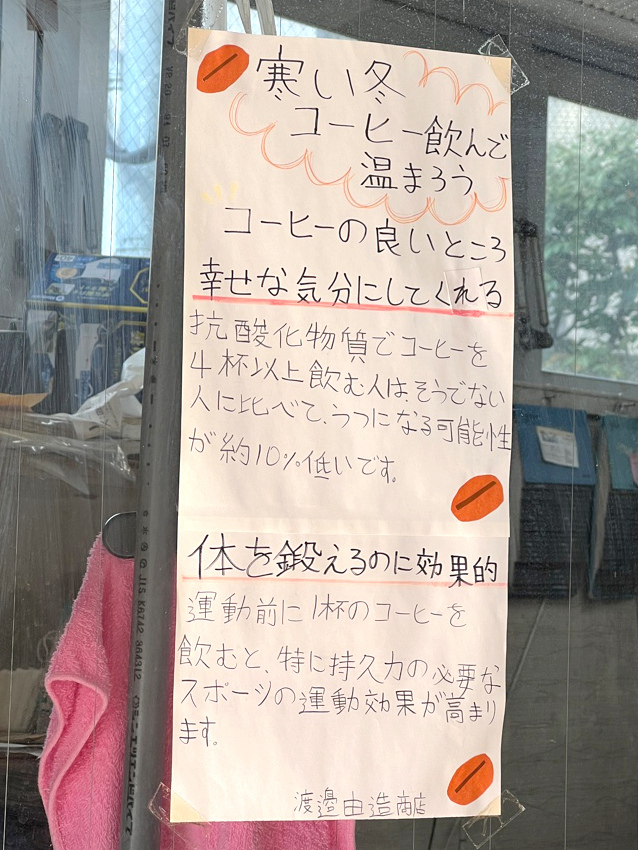 寒い冬
コーヒー飲んで
温まろう
コーヒーの良いところ
幸せな気分にしてくれる
抗酸化物質でコーヒーを
4杯以上飲む人は、そうでない
人に比べて、うつになる可能性
が約10%低いです。
体を鍛えるのに効果的
運動前に1杯のコーヒーを
飲むと、特に持久力の必要な
スポーツの運動効果が高まり
ます。
渡邉由造商店
JIS K6742